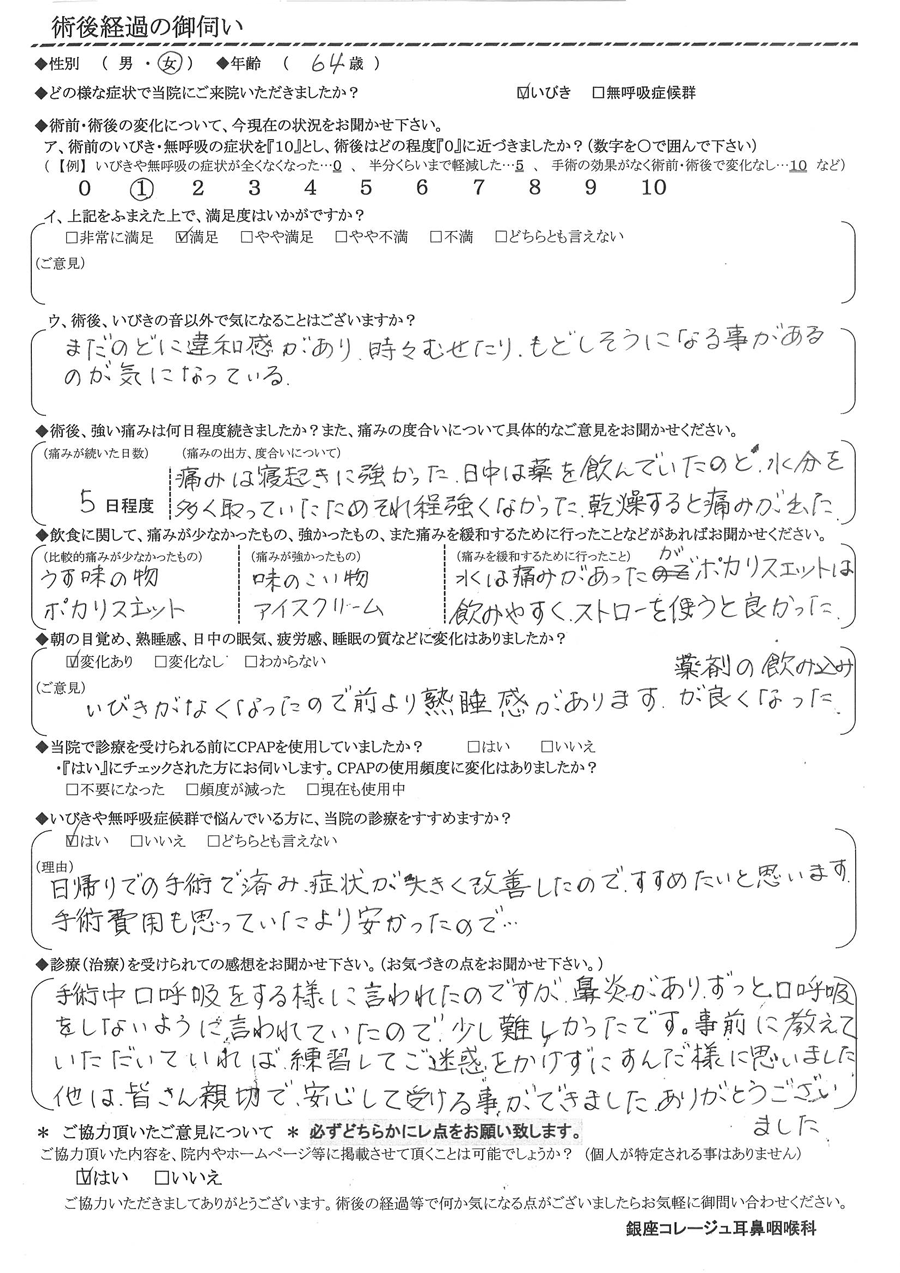 術後経過の御伺い
◆性別 （ 男 ・ 女 ） ◆年齢 （ 64 歳 ）
◆どの様な症状で当院にご来院いただきましたか？ ☑いびき □無呼吸症候群
◆術前・術後の変化について、今現在の状況をお聞かせ下さい。
ア、術前のいびき・無呼吸の症状を『10』とし、術後はどの程度『0』に近づきましたか？（数字を○で囲んで下さい）
（【例】 いびきや無呼吸の症状が全くなくなった…0 、 半分くらいまで軽減した…5 、 手術の効果がなく術前・術後で変化なし…10 など）
0 1 2 3 4 5 6 7 8 9 10
イ、上記をふまえた上で、満足度はいかがですか？
□非常に満足 ☑満足 □やや満足 □やや不満 □不満 □どちらとも言えない
(ご意見)
ウ、術後、いびきの音以外で気になることはございますか？
まだのどに違和感があり、時々むせたり、もどしそうになる事がある
のが気になっている。
◆術後、強い痛みは何日程度続きましたか？また、痛みの度合いについて具体的なご意見をお聞かせください。
(痛みが続いた日数) (痛みの出方、度合いについて)
痛みは寝起きに強かった。日中は薬を飲んでいたのと、水分を
5 日程度 多く取っていたためそれ程強くなかった。乾燥すると痛みが出た。
◆飲食に関して、痛みが少なかったもの、強かったもの、また痛みを緩和するために行ったことなどがあればお聞かせください。
(比較的痛みが少なかったもの) (痛みが強かったもの) (痛みを緩和するために行ったこと)
うす味の物 味のこい物 水は痛みがあったがポカリスエットは
ポカリスエット アイスクリーム 飲みやすく、ストローを使うと良かった。
◆朝の目覚め、熟睡感、日中の眠気、疲労感、睡眠の質などに変化はありましたか？
☑変化あり □変化なし □わからない
(ご意見) 薬剤の飲み込み
いびきがなくなったので前より熟睡感があります。が良くなった。
◆当院で診療を受けられる前にCPAPを使用していましたか？ □はい □いいえ
・『はい』にチェックされた方にお伺いします。CPAPの使用頻度に変化はありましたか？
□不要になった □頻度が減った □現在も使用中
◆いびきや無呼吸症候群で悩んでいる方に、当院の診療をすすめますか？
☑はい □いいえ □どちらとも言えない
(理由)
日帰りでの手術で済み、症状が大きく改善したので、すすめたいと思います。
手術費用も思っていたより安かったので…
◆診療（治療）を受けられての感想をお聞かせ下さい。（お気づきの点をお聞かせ下さい。）
手術中口呼吸をする様に言われたのですが、鼻炎があり、ずっと口呼吸
をしないように言われていたので、少し難しかったです。事前に教えて
いただいていれば、練習してご迷惑をかけずにすんだ様に思いました
他は、皆さん親切で、安心して受ける事ができました。ありがとうござい
ました。
＊ ご協力頂いたご意見について ＊ 必ずどちらかにレ点をお願い致します。
ご協力頂いた内容を、院内やホームページ等に掲載させて頂くことは可能でしょうか？ （個人が特定される事はありません）
☑はい □いいえ
ご協力いただきましてありがとうございます。術後の経過等で何か気になる点がございましたらお気軽に御問い合わせください。
銀座コレージュ耳鼻咽喉科